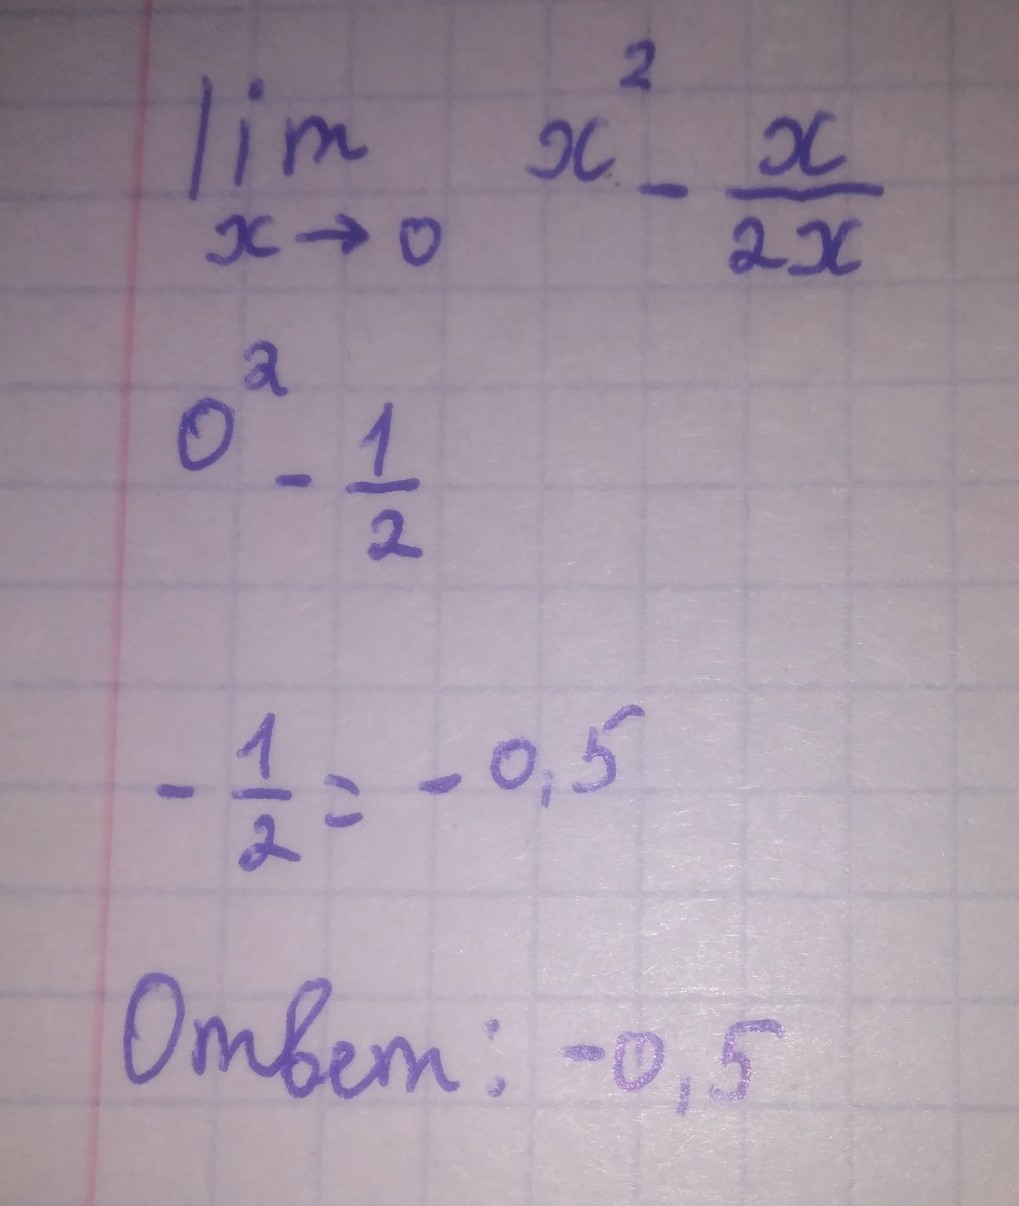 lim x² - x/2x
x→0
0² - 1/2
- 1/2 = - 0,5
Ответ: -0,5